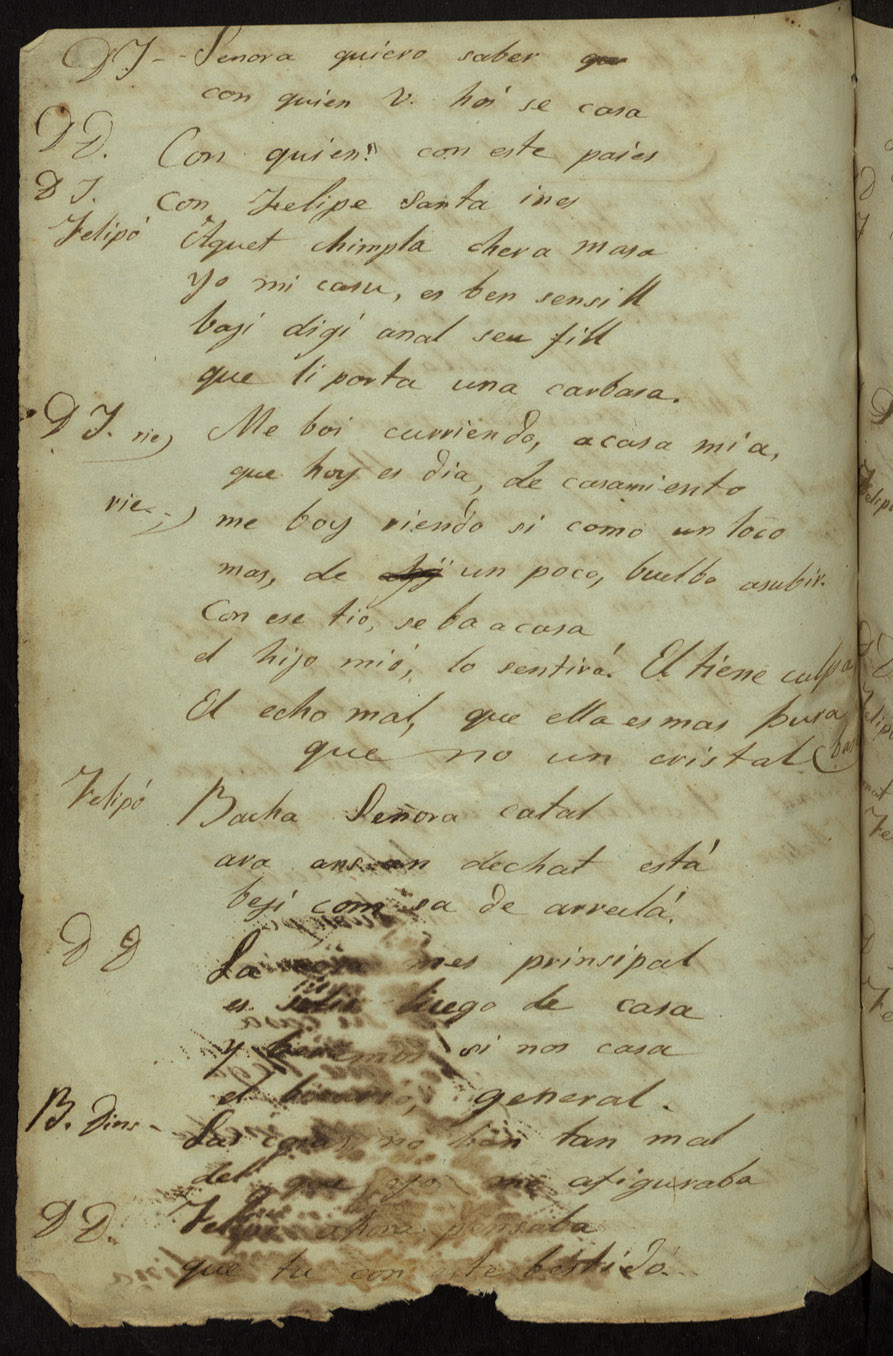 D J - - Señora quiero saber que
con quien V. hoi se casa
D D. Con quien? con este paies
D J. Con Felipe Santa ines
Felipó Aquet chimpla chera masa
Yo mi casu, es ben sensill
baji digi anal seu fill
que li porta una carbasa.
D J. rie) Me boi curriendo, a casa mia,
que hoy es dia, de casamiento
rie..) me boy riendo si como un loco
mas, de un poco, buelbo asubir.
Con ese tio, se ba a casa
el hijo mió, lo sentirá. El tiene culpa
El echo mal, que ella es mas pura
que no un cristal (bas
Felipó Bacha Señora catal
ara ansean dechat está
beji com sa de arrealá.
D D La mes prinsipal
es salir luego de casa
y beremos si nos casa
el bicario, general.
B. Dins - Las cosas no ban tan mal
del que yo me afiguraba
D D. Felipe ahora pensaba
que tu con este bestido.